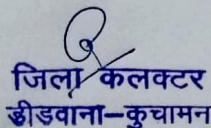 जिला कलक्टर
डीडवाना-कुचामन